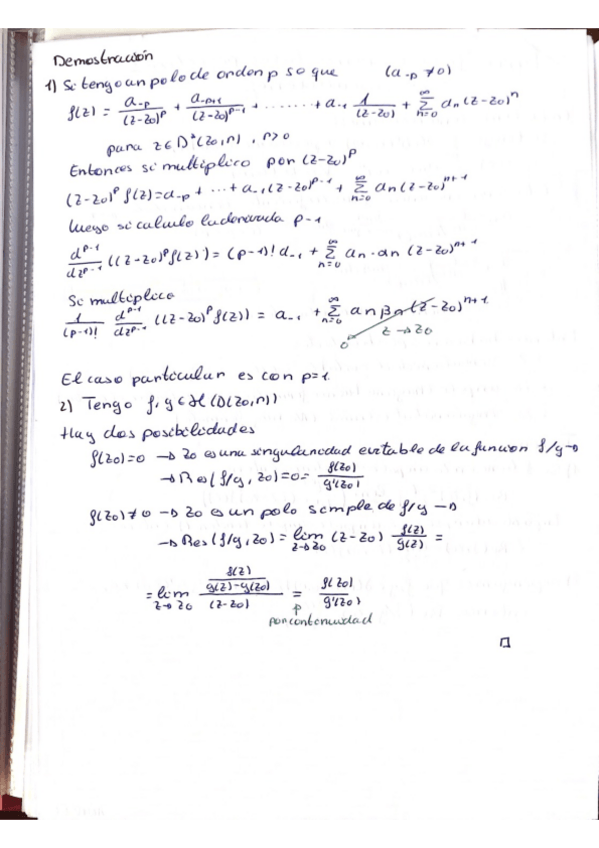 Demostración
1) Si tengo un polo de orden p so que (a_-p ≠ 0)
f(z) = a_-p/(z-z0)^p + a_-p+1/(z-z0)^p-1 + ........ + a_-1 1/(z-z0) + ∑_{n=0}^∞ an (z-z0)^n
para z ∈ D*(z0,r), r>0
Entonces si multiplico por (z-z0)^p
(z-z0)^p f(z) = a_-p + ... + a_-1 (z-z0)^p-1 + ∑_{n=0}^∞ an (z-z0)^n+1
Luego si calculo la derivada p-1
d^p-1/dz^p-1 ((z-z0)^p f(z)) = (p-1)! a_-1 + ∑_{n=0}^∞ an · αn (z-z0)^n+1
Si multiplico
1/(p-1)! d^p-1/dz^p-1 ((z-z0)^p f(z)) = a_-1 + ∑_{n=0}^∞ an βn (z-z0)^n+1
0 z → z0
El caso particular es con p=1
2) Tengo f, g ∈ H(D(z0,r))
Hay dos posibilidades
f(z0)=0 → z0 es una singularidad evitable de la función f/g →
→ Res(f/g, z0) = 0 = f(z0)/g'(z0)
f(z0) ≠ 0 → z0 es un polo simple de f/g →
→ Res(f/g, z0) = lim_{z→z0} (z-z0) f(z)/g(z) =
= lim_{z→z0} f(z)/((g(z)-g(z0))/(z-z0)) = f(z0)/g'(z0)
por continuidad
□